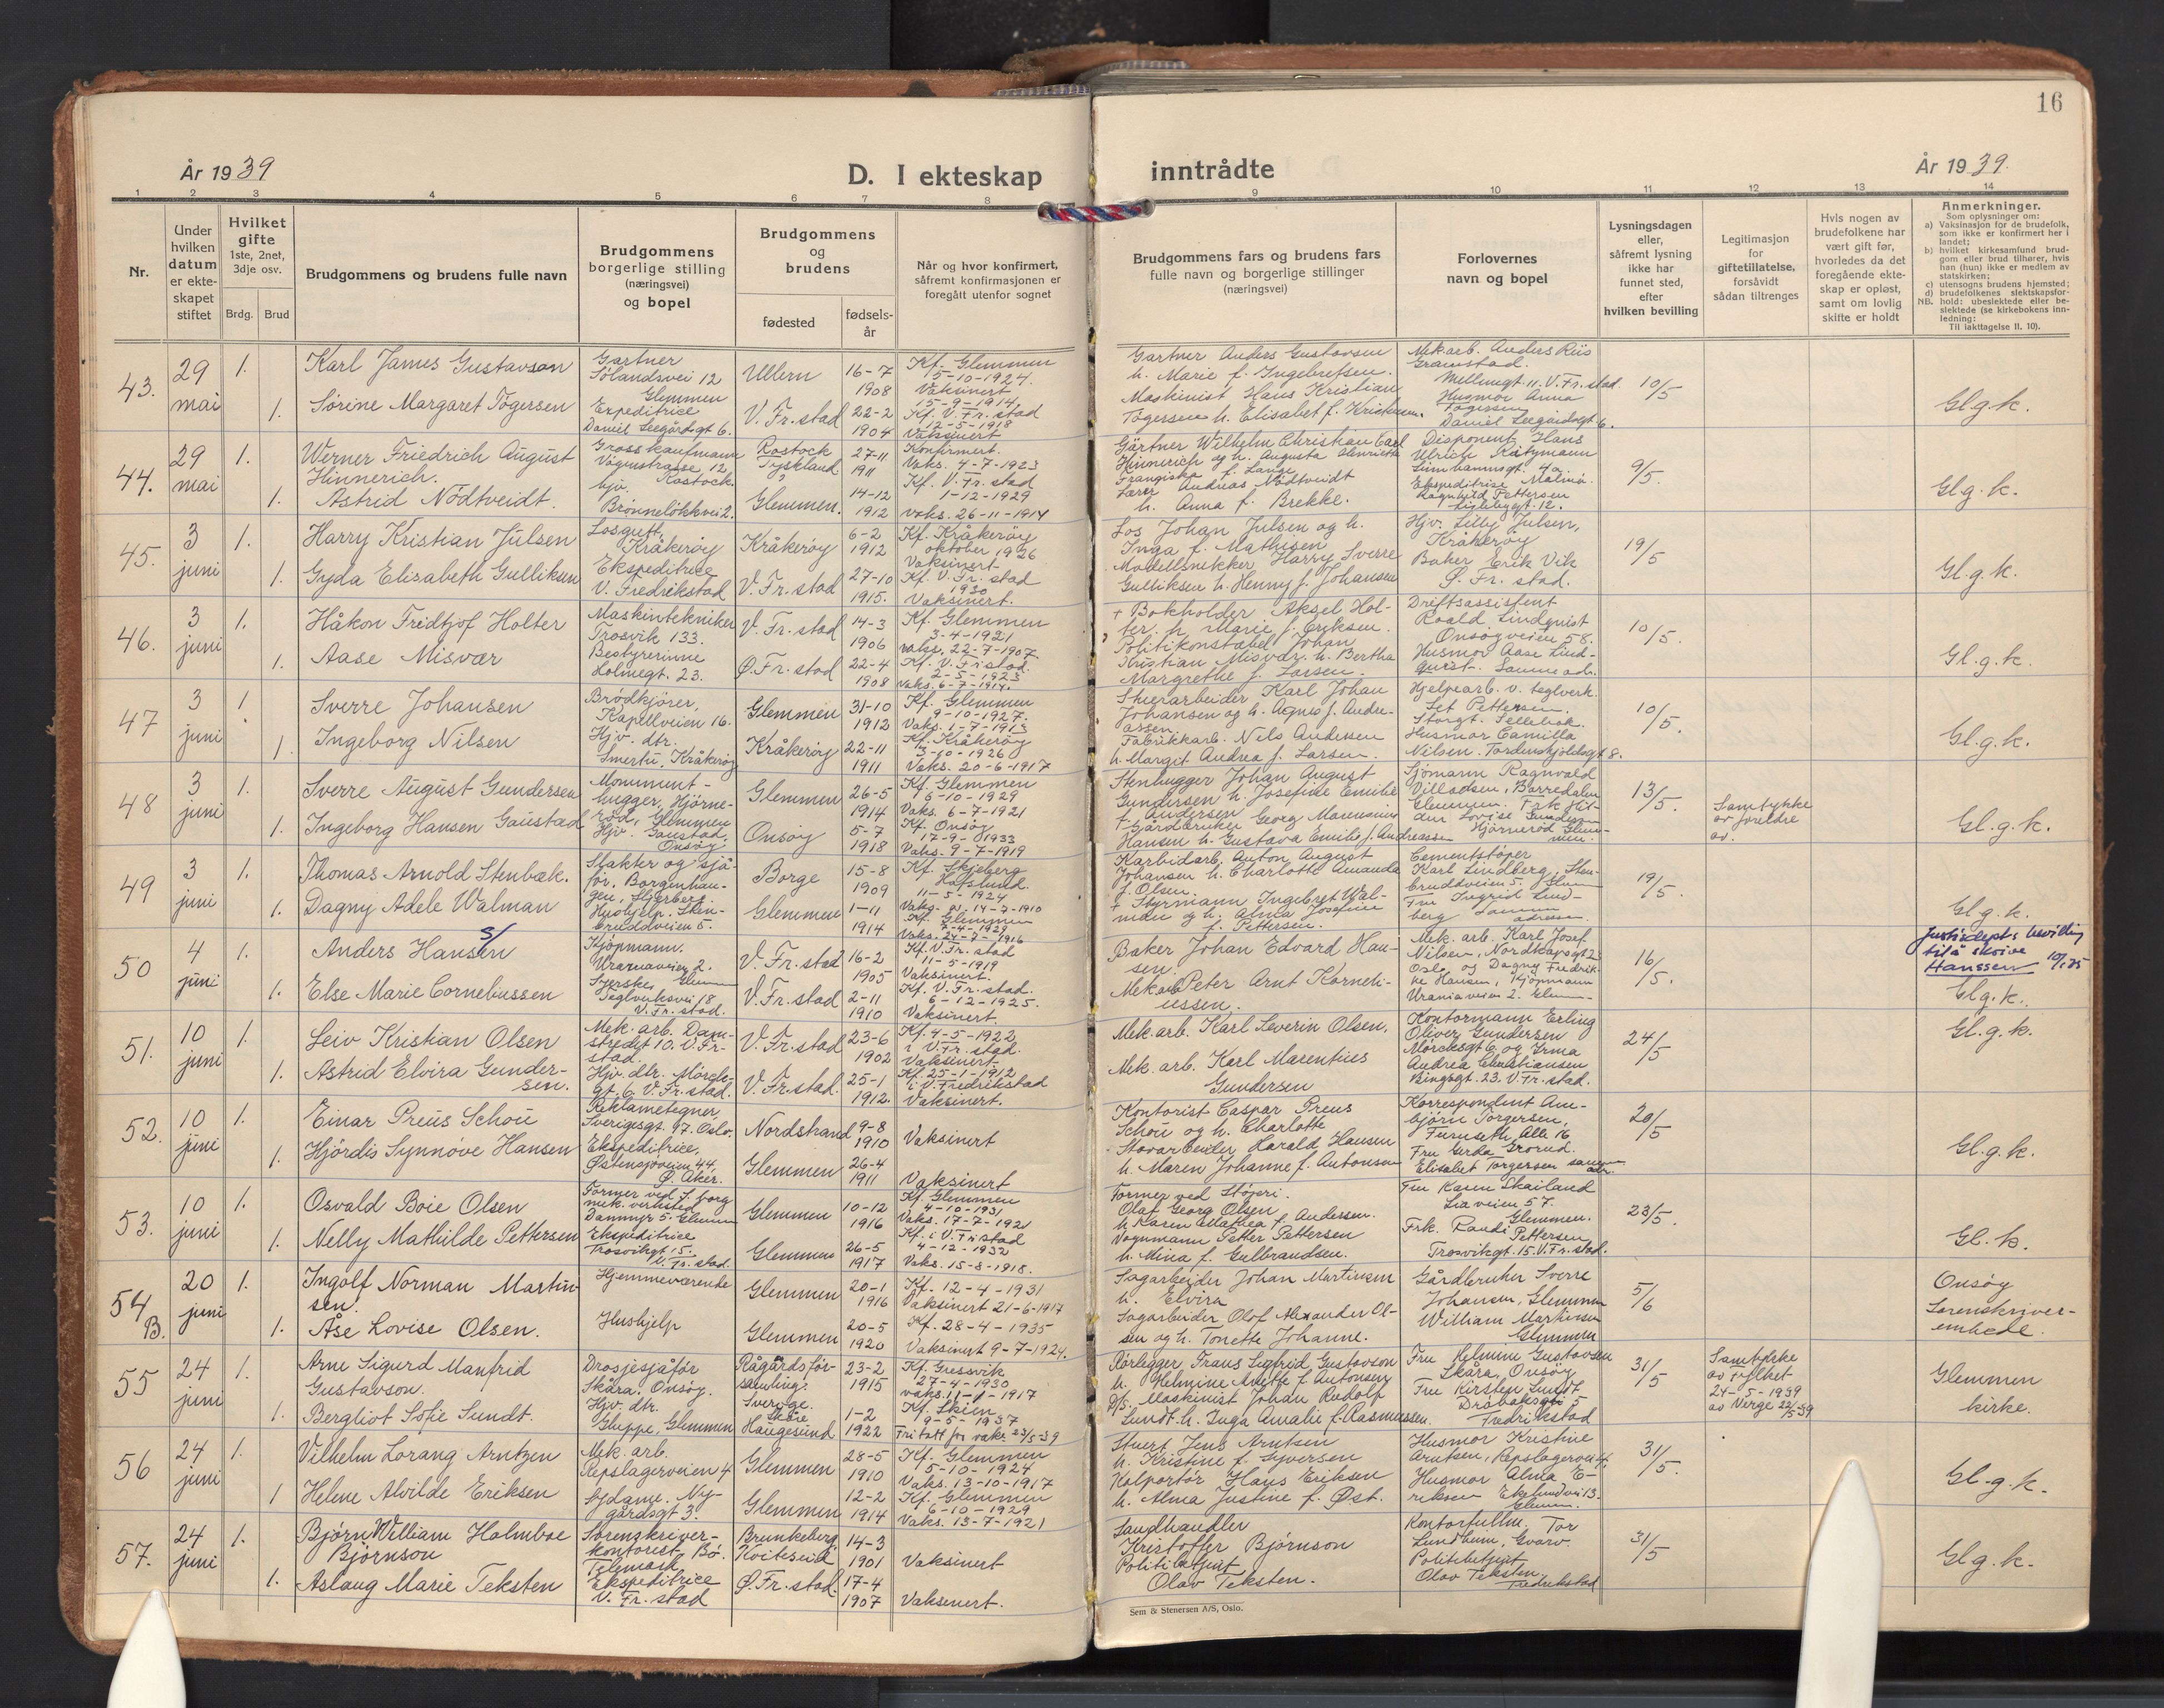 16
År 1939
D. I ekteskap
inntrådte
År 1939.
1 2 3 4 5 6 7 8 9 10 11 12 13 14
Nr.
Under
hvilken
datum
er ekte-
skapet
stiftet
Hvilket
gifte
1ste, 2net,
3dje osv.
Brdg. Brud
Brudgommens og brudens fulle navn
Brudgommens
borgerlige stilling
(næringsvei)
og bopel
Brudgommens
og
brudens
fødested
fødsels-
år
Når og hvor konfirmert,
såfremt konfirmasjonen er
foregått utenfor sognet
Brudgommens fars og brudens fars
fulle navn og borgerlige stillinger
(næringsvei)
Forlovernes
navn og bopel
Lysningsdagen
eller,
såfremt lysning
ikke har
funnet sted,
efter
hvilken bevilling
Legitimasjon
for
giftetillatelse,
forsåvidt
sådan tiltrenges
Hvis nogen av
brudefolkene har
vært gift før,
hvorledes da det
foregående ekte-
skap er opløst,
samt om lovlig
skifte er holdt
Anmerkninger.
Som oplysninger om:
a) Vaksinasjon for de brudefolk,
som ikke er konfirmert her i
landet;
b) hvilket kirkesamfund brud-
gom eller brud tilhører, hvis
han (hun) ikke er medlem av
statskirken;
c) utensogns brudens hjemsted;
d) brudefolkenes slektskapsfor-
NB. hold: ubeslektede eller be-
slektede (se kirkebokens inn-
ledning:
Til iakttagelse II. 10).
43.
29
mai
1.
1.
Karl James Gustavson
Sørine Margaret Tøgersen
Gartner
Sølandsvei 12
Glemmen
Expeditrice
Daniel Leegårdsgt 6.
Ullern
V. Fr. stad
16-7
1908
22-2
1904
Kf. Glemmen
5-10-1924.
Vaksinert
15-9-1914.
Kf. V. Fr. stad
12-5-1918
Vaksinert
Gartner Anders Gustavsen
h. Marie f. Ingebretsen.
Maskinist Hans Kristian
Tøgersen h. Elisabet f. Kristensen.
Mek.arb. Anders Riis
Gravstad.
Mellemgt. 11. V. Fr. stad.
Husmor Anna
Tøgersen
Daniel Leegårdsgt 6.
10/5
Gl.g.k.
44.
29
mai
1.
1.
Werner Friedrich August
Hinnerich.
Astrid Nödtveidt.
Grosskaufmann
Vögenstrasse, 12
Rostock.
hjv.
Brønneløkkvei 2.
Rostock
Tyskland
Glemmen.
27-11
1911
14-12
1912
Konfirmert.
Vaks. 4-7-1923
Kf. V. Fr. stad
1-12-1929
vaks. 26-11-1914
Gärtner Wilhelm Christian Carl
Hinnerich og h. Augusta Henriette
Franziska f. Lange
Lærer Andreas Nödtveidt
h. Anna f. Brekke.
Disponent Hans
Ulrich Kitzmann
Limhamnsgt. 4a
Malmö.
Ekspeditrise
Ragnhild Pettersen
12.
9/5.
Gl.g.k.
45.
3
juni
1.
1.
Harry Kristian Julsen
Gyda Elisabeth Gulliksen
Losgutt,
Kråkerøy
Ekspeditrice
V. Fredrikstad
Kråkerøy
V. Fr. stad
6-2
1912
27-10
1915.
Kf. Kråkerøy
oktober 1926
Vaksinert
Kf. V. Fr. stad
1930
Vaksinert.
Los Johan Julsen og h.
Inga f. Mathisen
Modellsnekker Harry Sverre
Gulliksen h. Henny f. Johansen
Hjv. Lilly Julsen,
Kråkerøy
Baker Erik Vik
Ø. Fr. stad.
19/5
Gl.g.k.
46.
3
juni
1.
1.
Håkon Fredtjof Holter
Aase Misvær
Maskintekniker
Trosvik 133.
Bestyrerinne
Holmegt. 23.
V. Fr. stad
Ø. Fr. stad
14-3
1906
22-4
1908
Kf. Glemmen
3-4-1921
vaks. 22-7-1907.
Kf. V. Fr stad.
2-5-1923
Vaks. 6-7-1914.
+ Bokholder Aksel Hol-
ter. h Marie f. Eriksen.
Politikonstabel Johan
Kristian Misvær. h. Bertha
Margrethe f. Larsen.
Driftsassistent
Roald Lindqvist
Onsøyveien 58.
Husmor Aase Lind-
quist. Samme adr.
10/5.
Gl.g.k.
47
3
juni
1
1.
Sverre Johansen
Ingeborg Nilsen
Brødkjører,
Kapellveien 16.
Hjv. dtr.
Smertu, Kråkerøy
Glemmen
Kråkerøy
31-10
1912
22-11
1911
Kf. Glemmen
9-10-1927.
Vaks. 1-7-1913
Kf. Kråkerøy
3-10-1926
Vaks. 20-6-1917
Stuerarbeider Karl Johan
Johansen og h. Agnes f. Andre-
assen.
Fabrikkarb. Nils Andersen
h. Margit Andrea f. Larsen.
Hjelpearb. v. teglverk.
Pettersen.
Storgt. Sellebak.
Husmor Camilla
Nilsen. Tordenskjoldsgt 8.
10/5.
Gl.g.k.
48
3
juni
1.
1.
Sverre August Gundersen
Ingeborg Hansen Gaustad
Monument-
hugger, Hjørne-
rød, Glemmen
Hjv. Gaustad
Onsøy
Glemmen
Onsøy
26-5
1914
5-7
1918
Kf. Glemmen
6-10-1929
Vaks. 6-7-1921
Kf. Onsøy
17-9-1933
Vaks. 9-7-1919
Stenhugger Johan August
Gundersen h. Josefine Emilie
f. Andersen
+ Gårdbruker Georg Marensius
Hansen h. Gustava Emilie f. Andreassen
Sjømann Ragnvald
Villadsen, Barredalen
Glemmen. Frk Hil-
dur Lovise Gundersen
Hjørnerød Glem-
men.
13/5.
Samtykke
av foreldre
Gl.g.k.
49
3
juni
1.
1.
Thomas Arnold Stenbæk.
Dagny Adele Walman
Slakter og sjå-
før, Borgenhau-
gen, Skjeberg.
Hushjelp. Sten-
bruddveien 5.
Borge
Glemmen
15-8
1909
1-11
1914
Kf. Skjeberg
Hafslund.
11-5-1924
Vaks. 14-7-1910
Kf. Glemmen
7-4-1929
Vaks. 24-7-1916
Karbidarb. Anton August
Johansen h. Charlotte Amanda
f. Olsen.
+ Styrmann Ingebret Wal-
man og h. Alma Josefine
f. Pettersen.
Cementstøper
Karl Lindberg, Sten-
bruddveien 5. Glem
Fru Ingrid Lind-
berg samme
adresse.
19/5.
Gl.g.k.
50
4
juni
1.
1.
Anders Hansen
s/
Else Marie Cornebussen
Kjøpmann,
Uranaveien 2.
Glem
Syerske,
Teglverksvei 18
V. Fr. stad.
V. Fr. stad
V. Fr. stad
16-2
1905
2-11
1910
Kf. V. Fr. stad
11-5-1919
Vaksinert.
Kf. V. Fr. stad.
6-12-1925.
Vaksinert.
Baker Johan Edvard Han-
sen.
Mekarb Peter Arnt Korneli-
ussen.
Mek. arb. Karl Josef
Nilsen, Nordkapsgt 2
Oslo og Dagny Fredrik-
ke Hansen, Kjøpmann
Uraniaveien 2. Glem-
16/5.
Justisdepts bevilling
til å skrive
Hanssen 10/1 35
Gl.g.k.
51.
10
juni
1.
1.
Leiv Kristian Olsen
Astrid Elvira Gunder-
sen.
Mek. arb. Dam-
stredet 10. V. Fr-
stad.
Hjv. dtr. Mørcks-
gt. 6. V. Fr. stad.
V. Fr. stad
V. Fr. stad.
23-6
1902
25-1
1912.
Kf. 4-5-1922
i V. Fr. stad.
Vaksinert
Kf. 25-1-1912
i V. Fredrikstad
Vaksinert.
Mek. arb. Karl Severin Olsen,
Mek. arb. Karl Marentius
Gundersen
Kontormann Erling
Oliver Gundersen
Mørcksgt 6 og Irma
Andrea Christiansen
Bingsgt. 23. V. Fr. stad.
24/5
Gl.g.k.
52.
10
juni
1.
1.
Einar Preus Schou
Hjørdis Synnøve Hansen
Reklametegner,
Sverigesgt. 97. Oslo.
Ekspeditrice,
Østensjøveien 44,
Ø. Aker.
Nordstrand
Glemmen
9-8
1910
26-4
1911
Vaksinert
Vaksinert
Kontorist Caspar Preus
Schou og h. Charlotte
Stovarbeider Harald Hansen
h. Maren Johanne f. Antonsen
Korrespondent Arn-
bjørn Torgersen,
Furuseth Alle 16
Grorud.
Fru Gerda
Elisabet Torgersen samme
adr.
20/5
Gl.g.k.
53.
10
juni
1.
1.
Osvald Boie Olsen
Nelly Mathilde Pettersen
Former ved J. borg
mek. verksted
Dammyr 5. Glemmen
Ekspeditrice
Trosvikgt 15.
V. Fr. stad.
Glemmen
Glemmen
10-12
1916
26-5
1917
Kf. Glemmen
4-10-1931
Vaks. 17-7-1921
Kf. i V. Fr stad
4-12-1932
Vaks. 15-8-1918.
Former ved Støperi.
Olaf Georg Olsen
h. Karen Mathea f. Andersen.
Vognmann Petter Pettersen
h. Mina f. Gulbrandsen.
Fru Karen Skailand
Liaveien 57.
Glemmen.
Frk. Randi Pettersen
Trosvikgt. 15. V. Fr. stad.
23/5.
Gl. k.
54
B.
20
juni
1.
1.
Ingolf Norman Martin-
sen.
Åse Lovise Olsen.
Hjemmeværende
Hushjelp
Glemmen
Glemmen
20-1
1916
20-5
1920
Kf. 12-4-1931
Vaksinert 21-6-1917
Kf. 28-4-1935
Vaksinert 9-7-1924.
Sagarbeider Johan Martinsen
h. Elvira
Sagarbeider Olof Alexander Ol-
sen og h. Tonette Johanne.
Gårdbruker Sverre
Johansen, Glemmen
William Martinsen
Glemmen
5/6
Onsøy
Sorenskriver-
embede.
55
24
juni
1.
1.
Arne Sigurd Manfrid
Gustavson.
Bergliot Sofie Sundt.
Drosjesjåfør
Skåra, Onsøy.
Hjv. dtr.
Gluppe, Glemmen
Rågårdsfør-
samling.
Sverige.
Skåre
Haugesund
23-2
1915
1-2
1922
Kf. Gressvik
27-4-1930
vaks. 11-1-1917
Kf. Skien
9-5-1937
Fritatt for vaks. 23/5-39
Rørlegger Frans Sigfrid Gustavson
h. Helmine Anette f. Antonsen
D/S. Maskinist Johan Rudolf
Sundt. h. Inga Amalie f. Rasmussen.
Fru Helmine Gustavsen
Skåra, Onsøy
Fru Kirsten Sundt
Drøbaksgt 5
Fredrikstad
31/5
Samtykke
av Fylket
24-5-1939
av Verge 22/5-39
Glemmen
kirke.
56
24
juni
1.
1
Vilhelm Lorang Arntzen
Helene Alvilde Eriksen
Mek. arb.
Repslagerveien 4
Sydame. Ny-
gårdsgt 3.
Glemmen
Glemmen
28-5
1910
12-2
1914
Kf. Glemmen
5-10-1924
Vaks. 13-10-1917
Kf. Glemmen
6-10-1929
Vaks. 13-7-1921
Stuert Jens Arntsen
h. Kristine f. Syversen
Kolportør Hans Eriksen
h. Alma Justine f. Øst.
Husmor Kristine
Arntsen, Repslagervei 4.
Husmor Alma E-
riksen Ekelundvei 13.
Glemm.
31/5.
Gl.g.k.
57.
24
juni
1.
1.
Bjørn William Holmboe
Bjørnson
Aslaug Marie Teksten
Sorenskriver-
kontorist, Bø.
Telemark.
Ekspeditrice
V. Fr. stad
Brunkeberg,
Kviteseid
Ø. Fr. stad.
14-3
1901
17-4
1907
Vaksinert
Vaksinert.
Landhandler
Kristoffer Bjørnson
Politibetjent
Olav Teksten.
Kontorfullm. Tor
Lundheim, Gvarv.
Politibetjent
Olav Teksten
Fredrikstad
31/5
Gl.g.k.
Sem & Stenersen A/S, Oslo.